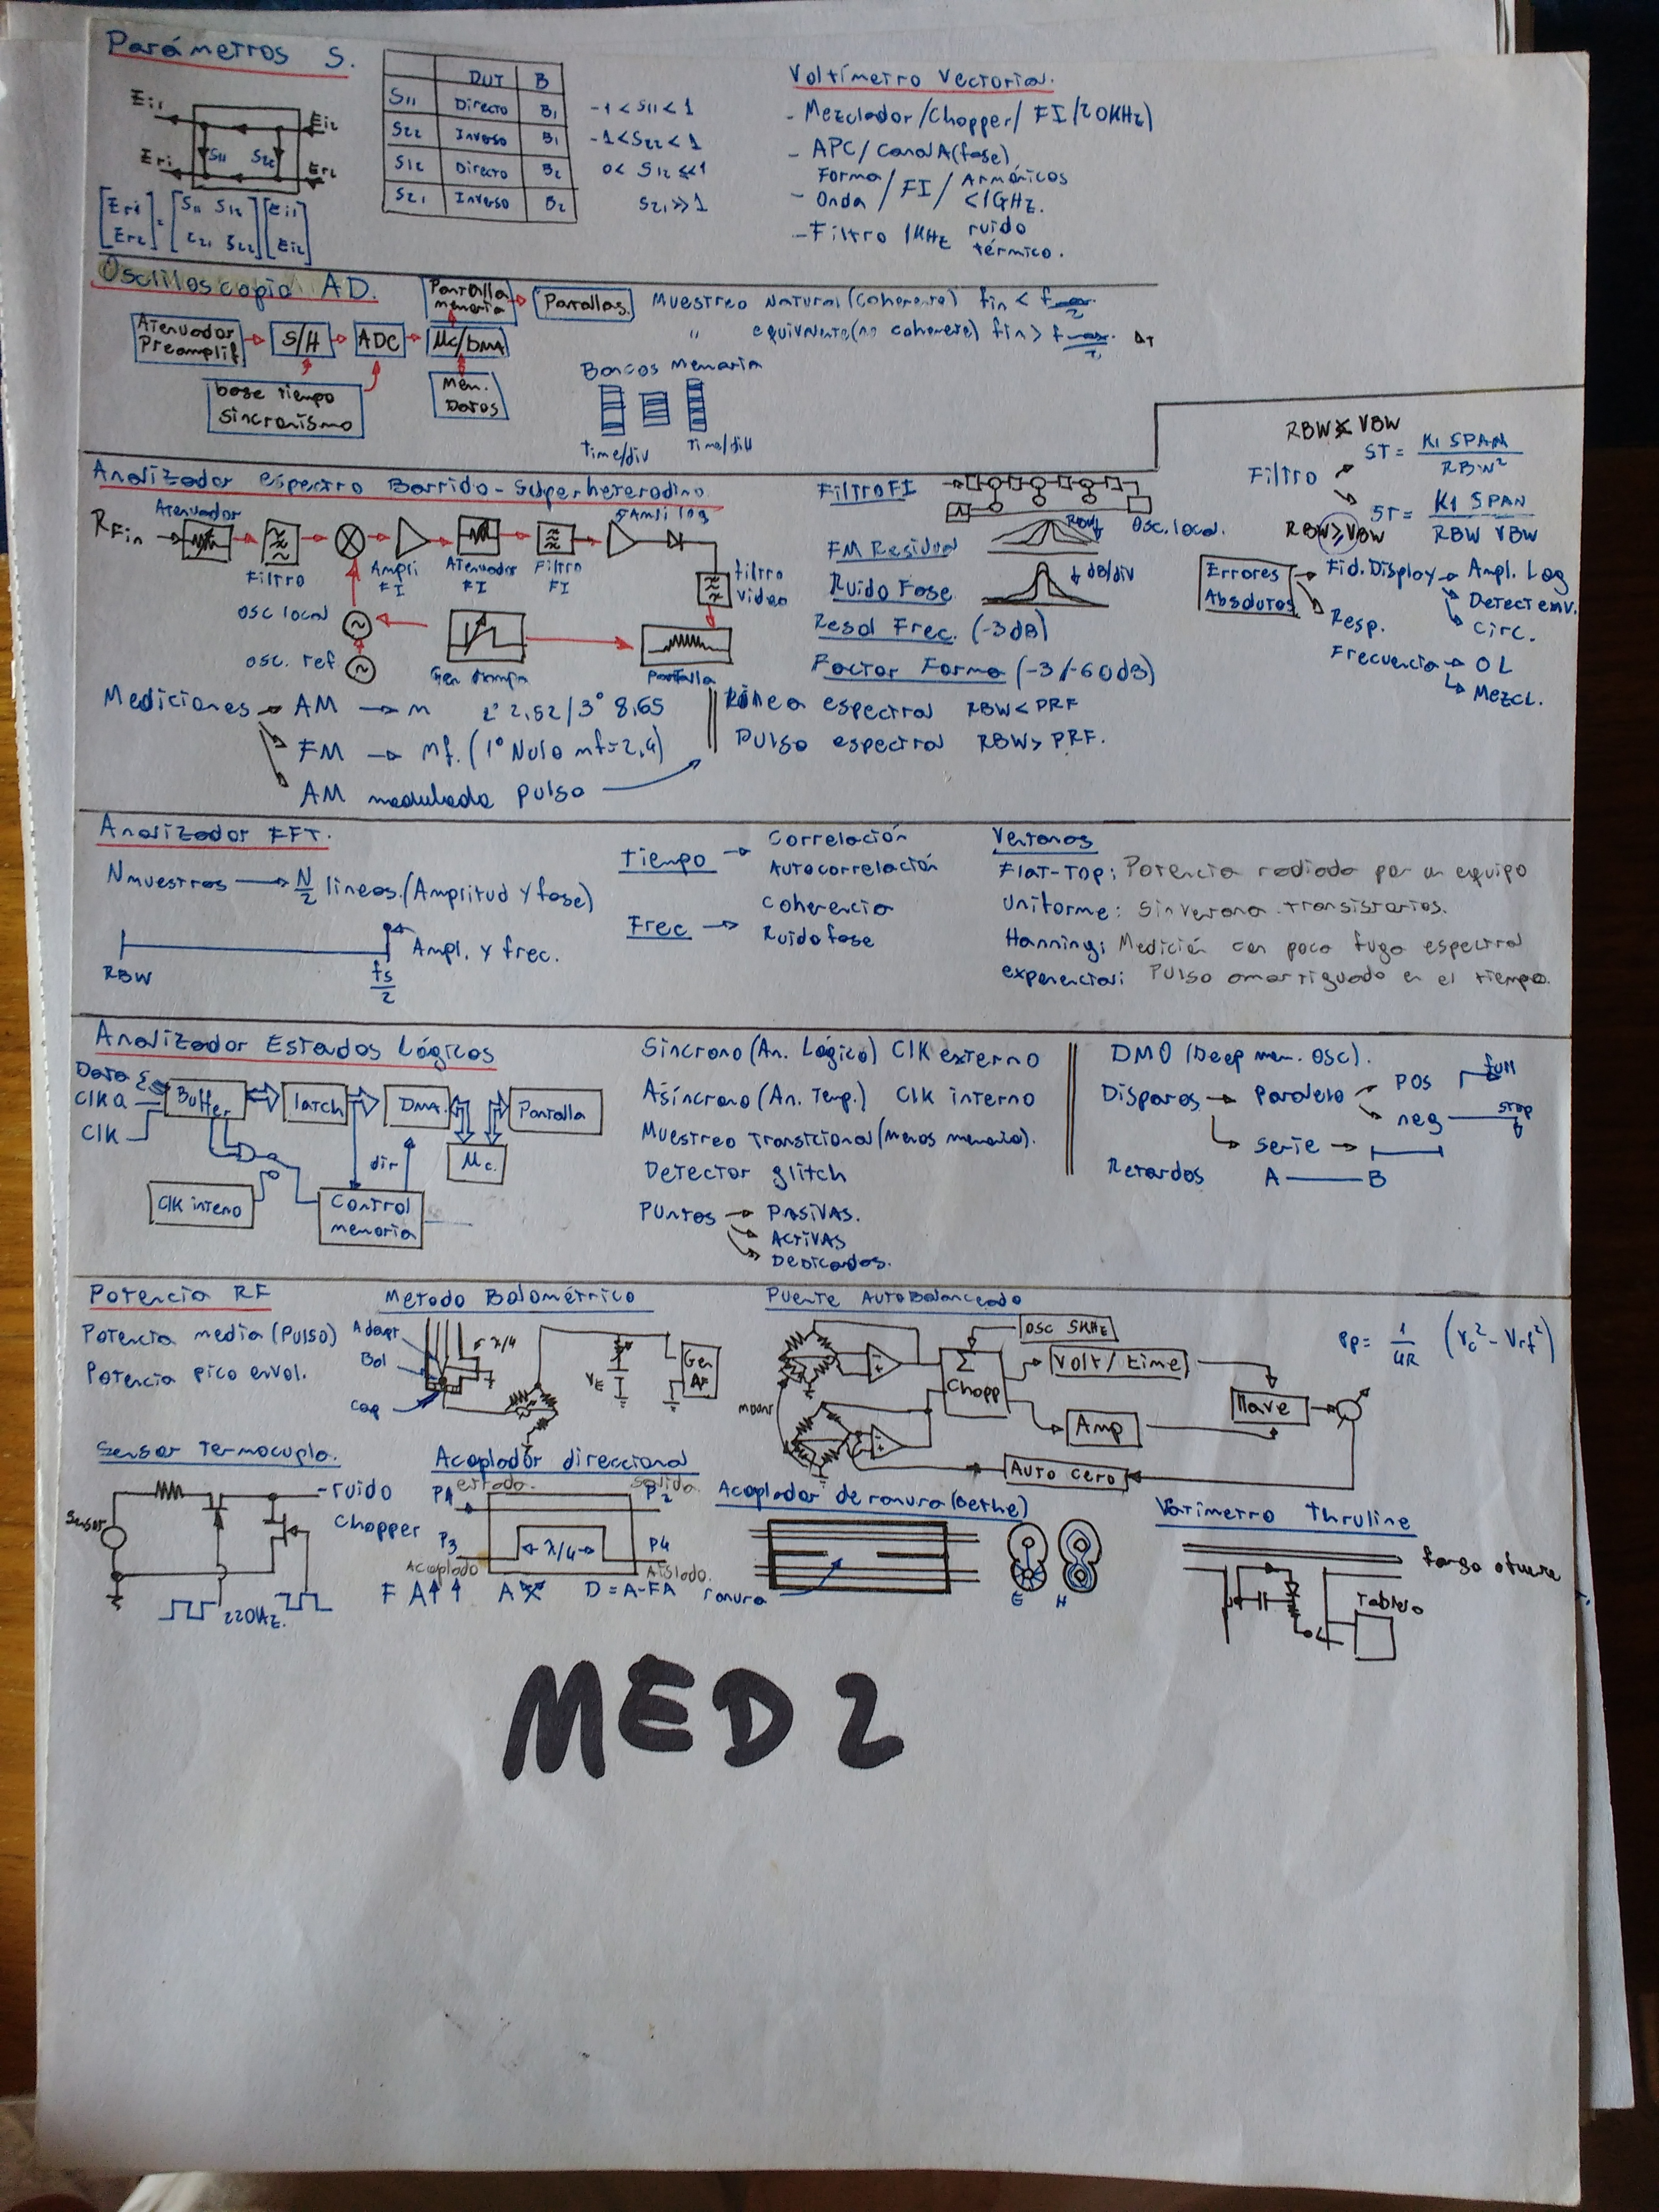 Parámetros S.
Ei1
Ei2
S11
S22
Er1
Er2
[Er1 Er2] = [S11 S12 S21 S22] [Ei1 Ei2]
DUT B
S11 Directo B1 -1 < S11 < 1
S22 Inverso B1 -1 < S22 < 1
S12 Directo B2 0 < S12 << 1
S21 Inverso B2 S21 >> 1
Voltímetro Vectorial.
- Mezclador/Chopper/ FI/20KHz)
- APC/Canal A(fase)
- Forma Onda / FI / Armónicos <1GHz.
- Filtro 1KHz ruido térmico.
Osciloscopio AD.
Atenuador Preamplif
S/H
ADC
Mc/DMA
Pantalla memoria
Pantallas
base tiempo sincronismo
Mem. Datos
Muestreo Natural (coherente) fin <
" equivalente (no coherente) fin >
Bancos Memoria
Time/div
Time/div
Analizador espectro Barrido-Superheterodino
RFin
Atenuador
Filtro
Ampli FI
Atenuador FI
Filtro FI
Ampli log
filtro video
osc local
osc. ref
Gen rampa
Pantalla
Filtro FI
RBW
Osc. local.
FM Residual
Ruido Fase
dB/div
Resol Frec. (-3dB)
Factor Forma (-3/-60dB)
RBW < VBW
Filtro
ST = K1 SPAN / RBW²
ST = K1 SPAN / RBW VBW
RBW ≥ VBW
Errores Absolutos
Fid. Display
Ampl. Log
Detect env.
Circ.
Resp. Frecuencia
OL
Mezcl.
Mediciones → AM → m 2° 2,52/3° 8,65
FM → mf. (1° Nulo mf=2,4)
AM modulada pulso
Línea espectral RBW < PRF
Pulso espectral RBW > PRF.
Analizador FFT.
N muestras → N/2 líneas. (Amplitud y fase)
Ampl. y frec.
RBW
fs/2
Tiempo → Correlación
Autocorrelación
Frec → Coherencia
Ruido fase
Ventanas
Flat-Top: Potencia radiada por un equipo
Uniforme: Sin ventana. Transistorios.
Hanning: Medición con poca fuga espectral
exponencial: Pulso amortiguado en el tiempo.
Analizador Estados Lógicos
Data
Clk Q
Clk
Buffer
latch
DMA
Pantalla
Mc.
dir
Clk interno
Control memoria
Síncrono (An. Lógico) Clk externo
Asíncrono (An. Temp.) Clk interno
Muestreo transicional (menos memoria).
Detector glitch
Puntas → PASIVAS.
ACTIVAS
DEDICADAS.
DMO (Deep mem. osc).
Disparos → Paralelo → pos full
neg stop
Serie
Retardos A — B
Potencia RF
Potencia media (Pulso)
Potencia pico envol.
Metodo Bolométrico
Adapt
Bol
Cap
λ/4
VE
Gen AF
Puente AutoBalanceado
OSC 5KHz
Σ Chopp
Volt/time
Amp
llave
Auto cero
Pp = 1/4R (Vc² - Vrf²)
Sensor Termocupla.
Sensor
-ruido
chopper
220Hz.
Acoplador direccional
P1 entrada.
salida P2
P3
P4
λ/4
Acoplado
Aislado.
F A↑ ↑ A D = A-FA
Acoplador de ranura (Bethe)
ranura
E H
Vatímetro Thruline
Tablero
MED 2